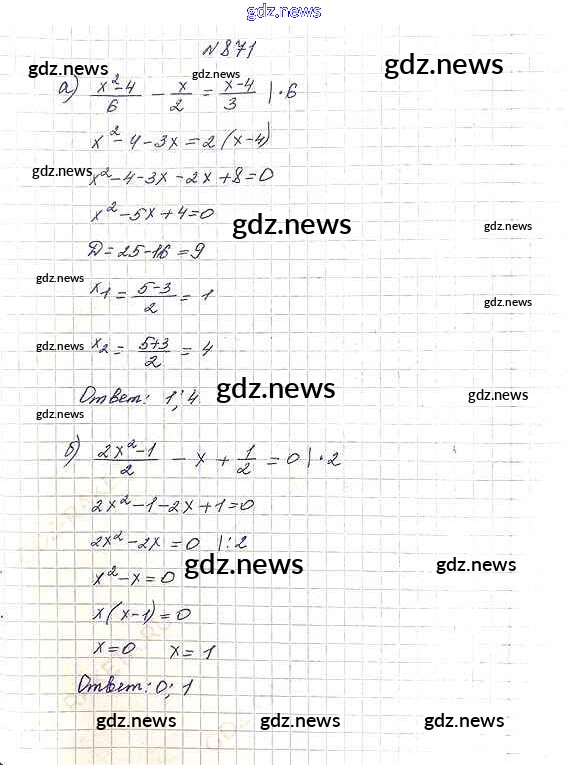 gdz.news
N 871
gdz.news gdz.news gdz.news
а) x²-4/6 - x/2 = x-4/3 | ·6
x² - 4 - 3x = 2(x-4)
gdz.news
x² - 4 - 3x - 2x + 8 = 0
x² - 5x + 4 = 0
gdz.news gdz.news
D = 25 - 16 = 9
gdz.news
x₁ = 5-3/2 = 1
gdz.news
gdz.news
x₂ = 5+3/2 = 4
Ответ: 1; 4
gdz.news gdz.news
gdz.news
б) 2x²-1/2 - x + 1/2 = 0 | ·2
2x² - 1 - 2x + 1 = 0
2x² - 2x = 0 | :2
gdz.news gdz.news
x² - x = 0
x(x-1) = 0
x = 0 x = 1
Ответ: 0; 1
gdz.news gdz.news gdz.news